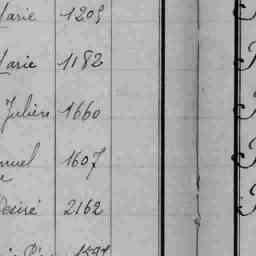 Marie 1209
Marie 1182
Julien 1660
nuel 1607
Désiré 2162